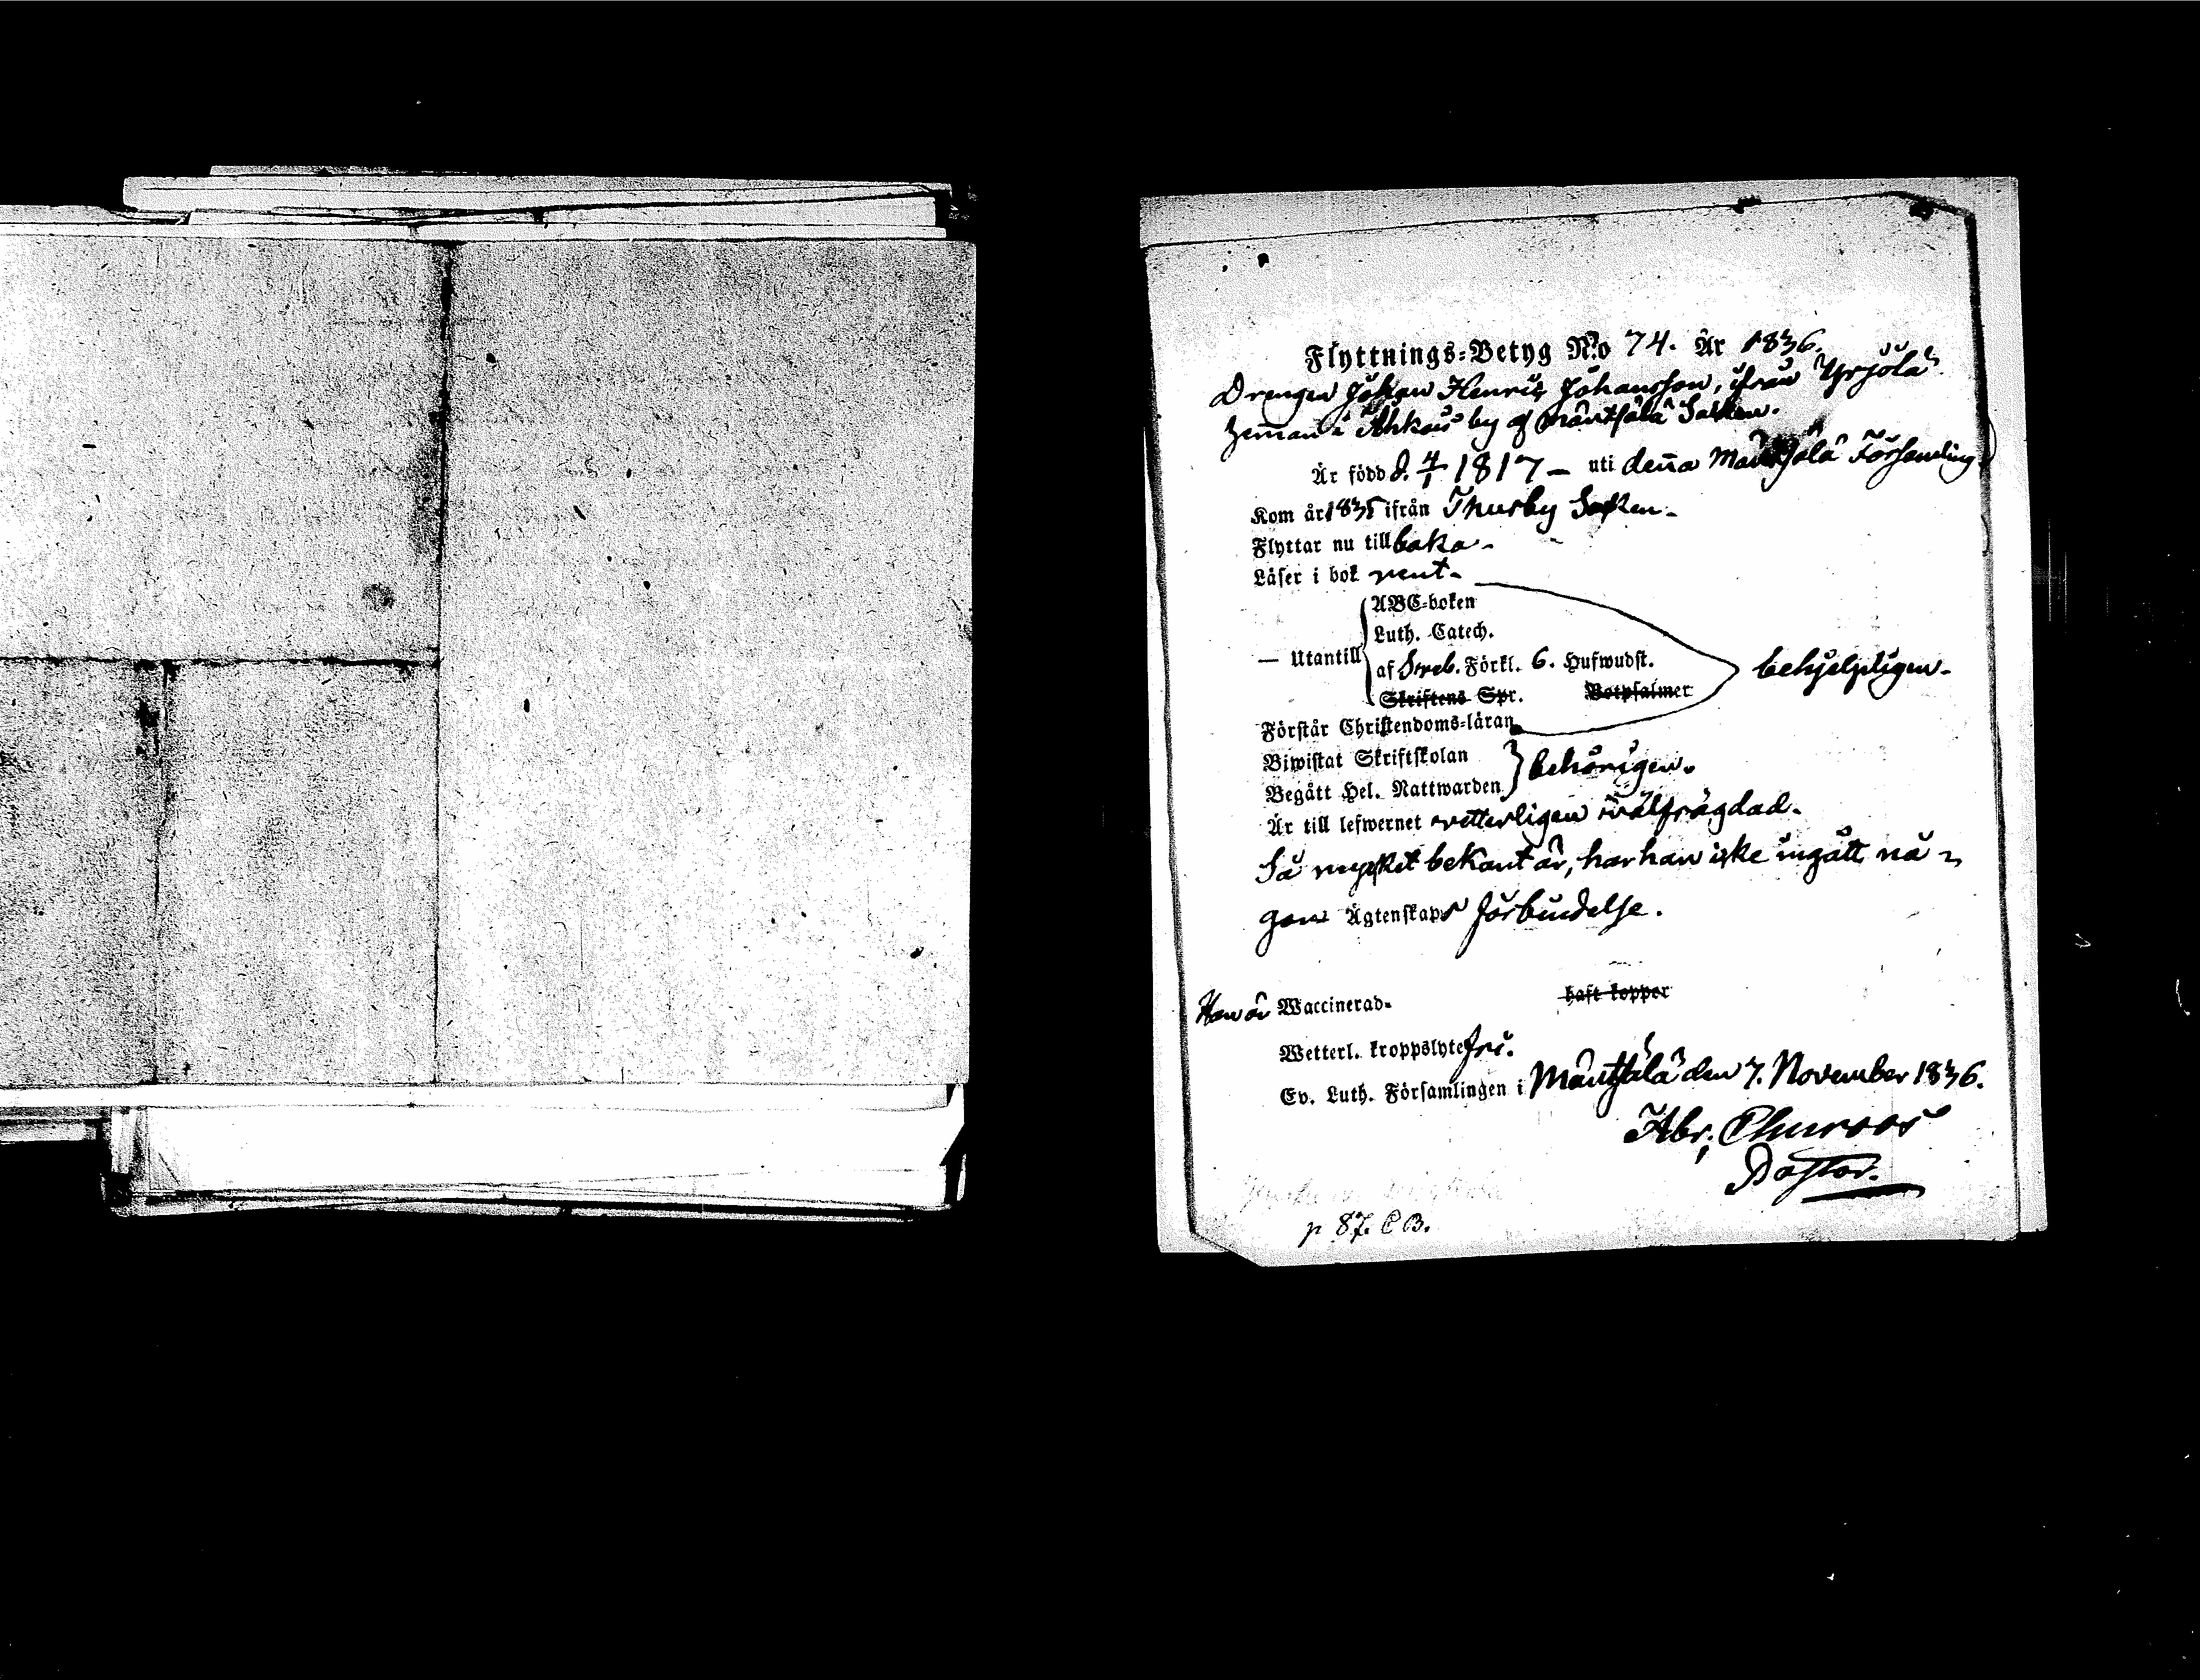 Flyttnings-Betyg No 74. År 1836.
Drengen Johan Henric Johansson, ifrån Yrjölä
heman i Ahkois by af Mäntsälä Socken.
Är född d. 4/1 1817 – uti denna Mäntsälä Församling.
Kom år 1835 ifrån Thusby Socken.
Flyttar nu till baka.
Läser i bok rent.
ABC-boken
Luth. Catech.
— Utantill af Sveb. Förkl. 6. Hufwudst. behjelpligen.
Skriftens Spr. Botpsalmer
Förstår Christendoms-läran
Biwistat Skriftskolan
Begått Hel. Nattwarden behörigen.
Är till lefwernet vetterligen välfrägdad.
Så mycket bekant är, har han icke ingått nå-
gon Ägtenskaps förbindelse.
Han är Waccinerad. haft koppor
Wetterl. kroppslyte fri.
Ev. Luth. Församlingen i Mäntsälä den 7. November 1836.
Abr. Churoos
Pastor.
p 87. C B.